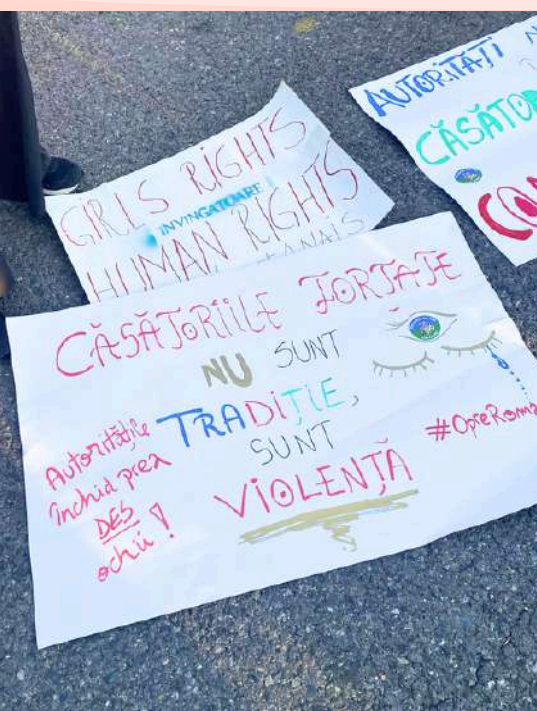 GIRLS RIGHTS
INVINGATOARE
HUMAN RIGHTS
AUTORITĂȚI
CĂSĂTORIILE FORȚATE
NU SUNT
TRADIȚIE,
SUNT
VIOLENȚĂ
Autoritățile
închid prea
DES
ochii!
#OpreRoma